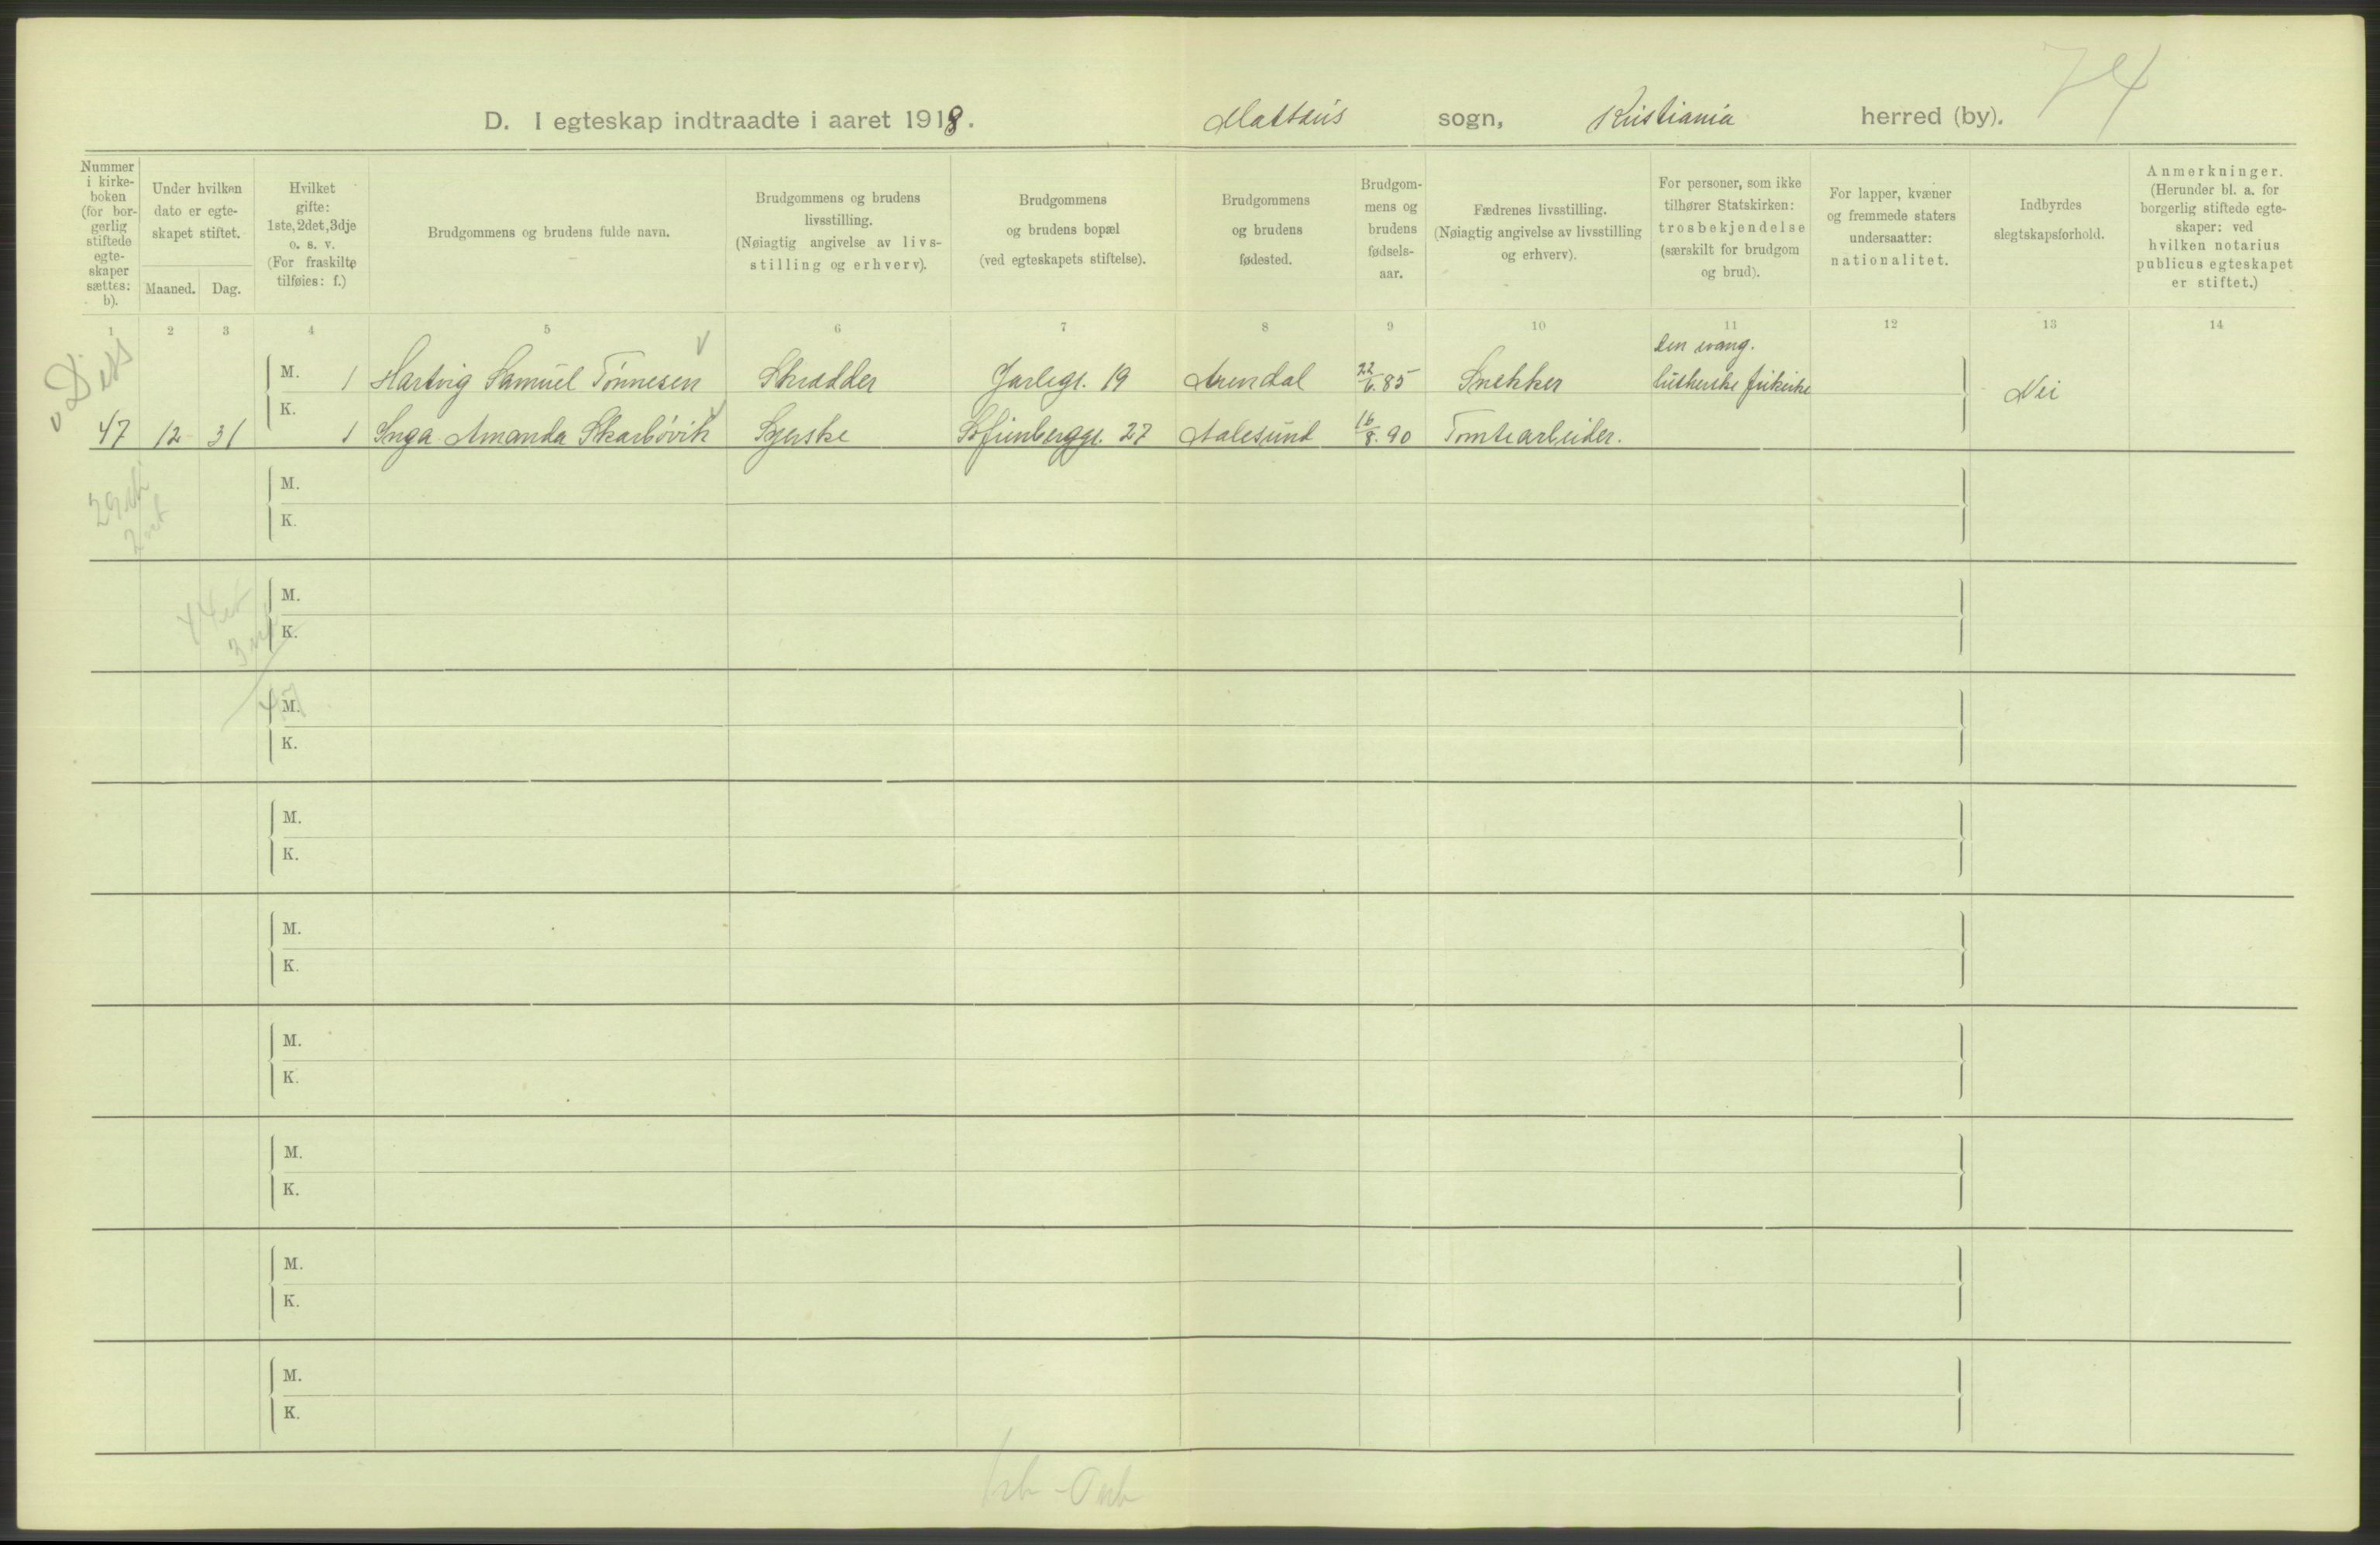 74
D. I egteskap indtraadte i aaret 1918. Mattæus sogn, Kristiania herred (by).
Nummer i kirke- boken (for bor- gerlig stiftede egte- skaper sættes: b).
Under hvilken dato er egte- skapet stiftet.
Maaned. Dag.
Hvilket gifte: 1ste, 2det, 3dje o. s. v. (For fraskilte tilføies: f.)
Brudgommens og brudens fulde navn.
Brudgommens og brudens livsstilling. (Nøiagtig angivelse av livs- stilling og erhverv).
Brudgommens og brudens bopæl (ved egteskapets stiftelse).
Brudgommens og brudens fødested.
Brudgom- mens og brudens fødsels- aar.
Fædrenes livsstilling. (Nøiagtig angivelse av livsstilling og erhverv).
For personer, som ikke tilhører Statskirken: trosbekjendelse (særskilt for brudgom og brud).
For lapper, kvæner og fremmede staters undersaatter: nationalitet.
Indbyrdes slegtskapsforhold.
Anmerkninger. (Herunder bl. a. for borgerlig stiftede egte- skaper: ved hvilken notarius publicus egteskapet er stiftet.)
1 2 3 4 5 6 7 8 9 10 11 12 13 14
Diss
M. 1 Hartvig Samuel Tønnesen Skrædder Jarlegt. 19 Arendal 22/6. 85 Snekker Den evang. lutherske frikirke Nei
47 12 31 K. 1 Inga Amanda Skarbøvik Syerske Sofienberggt. 27 Aalesund 16/8. 90 Tomtearbeider.
M.
K.
M.
K.
M.
K.
M.
K.
M.
K.
M.
K.
M.
K.
M.
K.
M.
K.